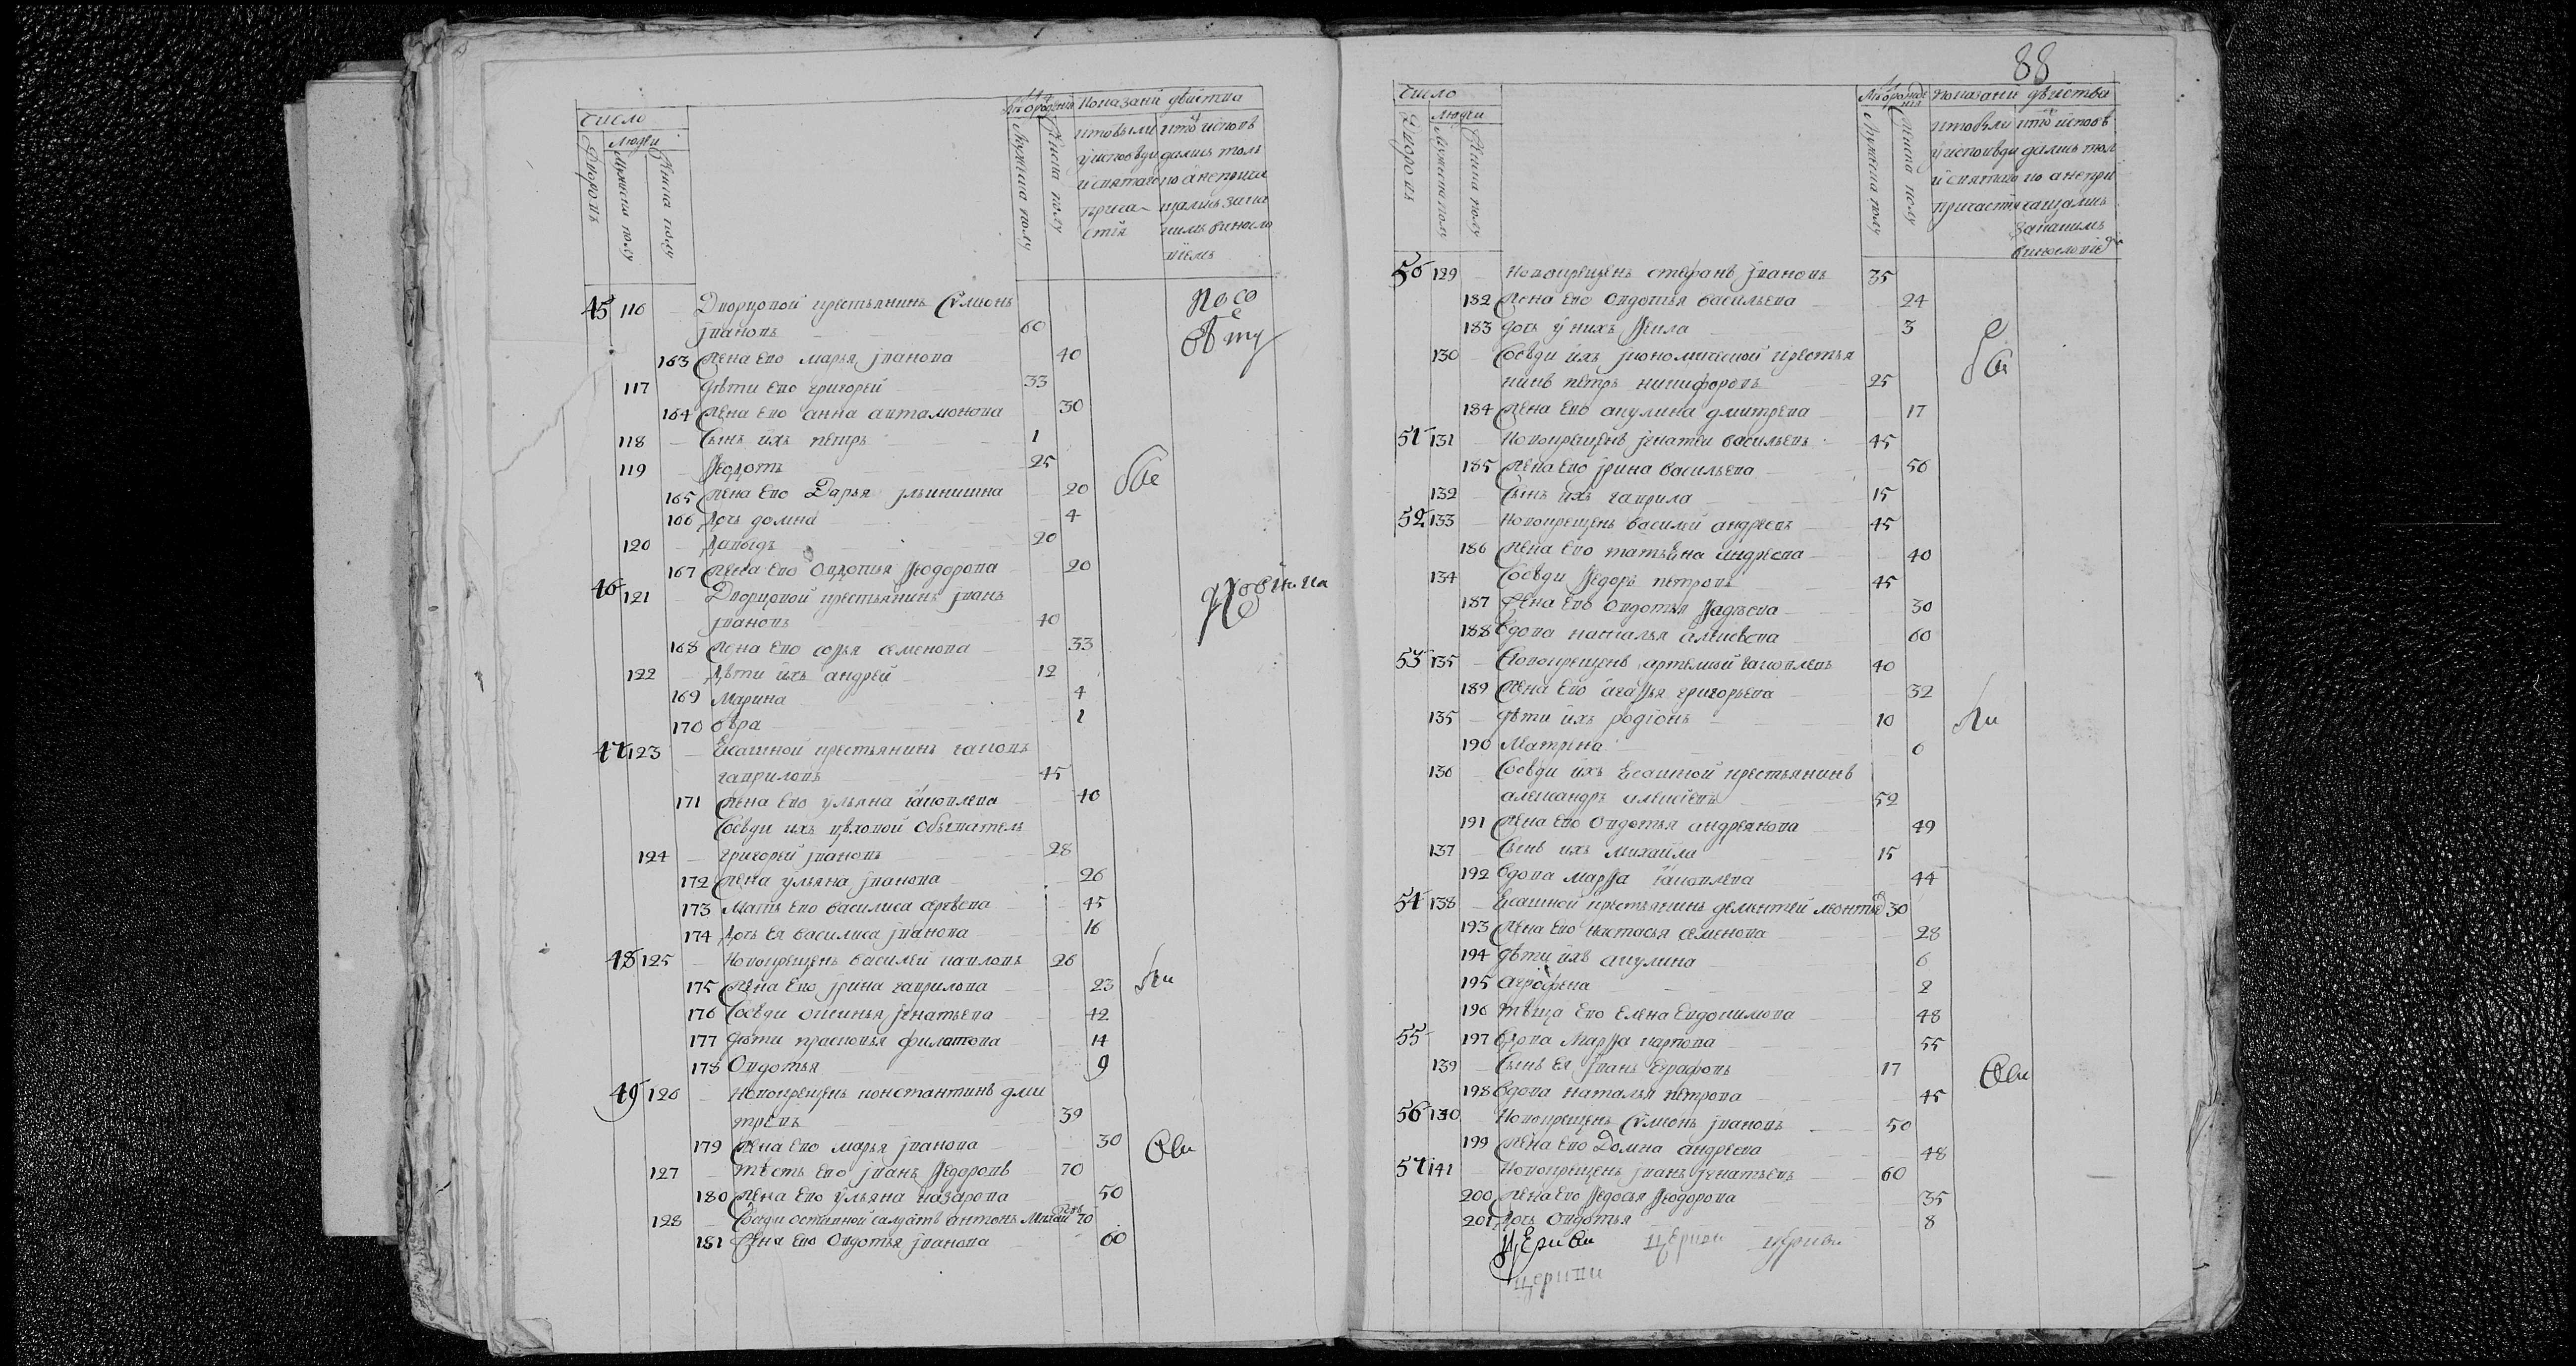 число
Людеи
Дворовъ
Мужеска полу
Женска полу
Мужеска полу
Женска полу
Показани двиства
45 116 Дворцовой крестьянинъ Сѵмионъ
Івановъ 60
163 Жена ево марья Іванова 40
117 дѣти ево григорей 33
164 Жена ево анна антамонова 30
118 Сынъ ихъ петръ 1
119 Ѳедотъ 25
165 Жена ево Дарья ильинишна 20
166 Дочь домна 4
120 Давыдъ 20
167 Жена ево Овдотья Ѳеодорова 20
46 121 Дворцовой крестьянинъ Іванъ
Івановъ 40
168 Жена ево софья семенова 33
122 Дѣти ихъ андрей 12
169 Марина 4
170 вѣра 1
47 123 Ясашной крестьянинъ іаковъ
гавриловъ 45
171 Жена ево ульяна іаковлева 40
Сосѣди ихъ цѣховой Обыватель
124 григорей Івановъ 28
172 Жена ульяна Іванова 26
173 Мать ево василиса сергѣева 45
174 Дочь ея василиса Іванова 16
48 125 Новокрещенъ василей павловъ 26
175 Жена ево Ірина гаврилова 23
176 Сосѣди Ігнатьева 42
177 дѣти прасковья филатова 14
178 Овдотья 9
49 126 Новокрещенъ константинъ дми
трѣвъ 39
179 Жена ево марья Іванова 30
127 тѣсть ево Іванъ Ѳедоровъ 70
180 Жена ево ульяна назарова 50
128 Сосѣди отставной салдатъ антонъ Михай ловъ 70
181 Жена ево Овдотья Іванова 60
88
число
Люди
Дворовъ
Мужеска полу
Женска полу
Мужеска полу
Женска полу
Показани двиства
50 129 Новокрещенъ стефанъ Івановъ 35
182 Жена ево Овдотья васильева 24
183 дочь у нихъ Ѳекла 3
130 Сосѣди ихъ Ікономической крестья
нинъ петръ никифоровъ 25
184 Жена ево акулина дмитрева 17
51 131 Новокрещенъ Ігнатеи васильевъ 45
185 Жена ево Ірина васильева 56
132 Сынъ ихъ гаврила 15
52 133 Новокрещенъ василей андреевъ 45
186 Жена ево татьяна андреева 40
134 Сосѣди Ѳедоръ петровъ 45
187 Жена ево Овдотья Ѳадѣева 30
188 вдова наталья алексѣева 60
53 135 Новокрещенъ артемий іаковлевъ 40
189 Жена ево агафья григорьева 32
135 дѣти ихъ родіонъ 10
190 Матрена 6
136 Сосѣди ихъ Ясашной крестьянинъ
александръ алексѣевъ 52
191 Жена ево Овдотья андреянова 49
137 Сынъ ихъ михаила 15
192 вдова марѳа іаковлева 44
54 138 Ясашной крестьянинъ дементей леонтьев 30
193 Жена ево настасья семенова 28
194 дѣти ихъ акулина 6
195 аграфена 2
196 тѣща ево Елена Евдокимова 48
55 197 вдова Марѳа карпова 55
139 Сынъ ея Іванъ Еграфовъ 17
198 вдова наталья петрова 45
56 140 Новокрещенъ Сѵмионъ Івановъ 50
199 Жена ево Домна андреева 48
57 141 Новокрещенъ Іванъ Ігнатьевъ 60
200 Жена ево Ѳедосья Ѳеодорова 35
201 Дочь Овдотья 8
церкви церкви церкви
церкви